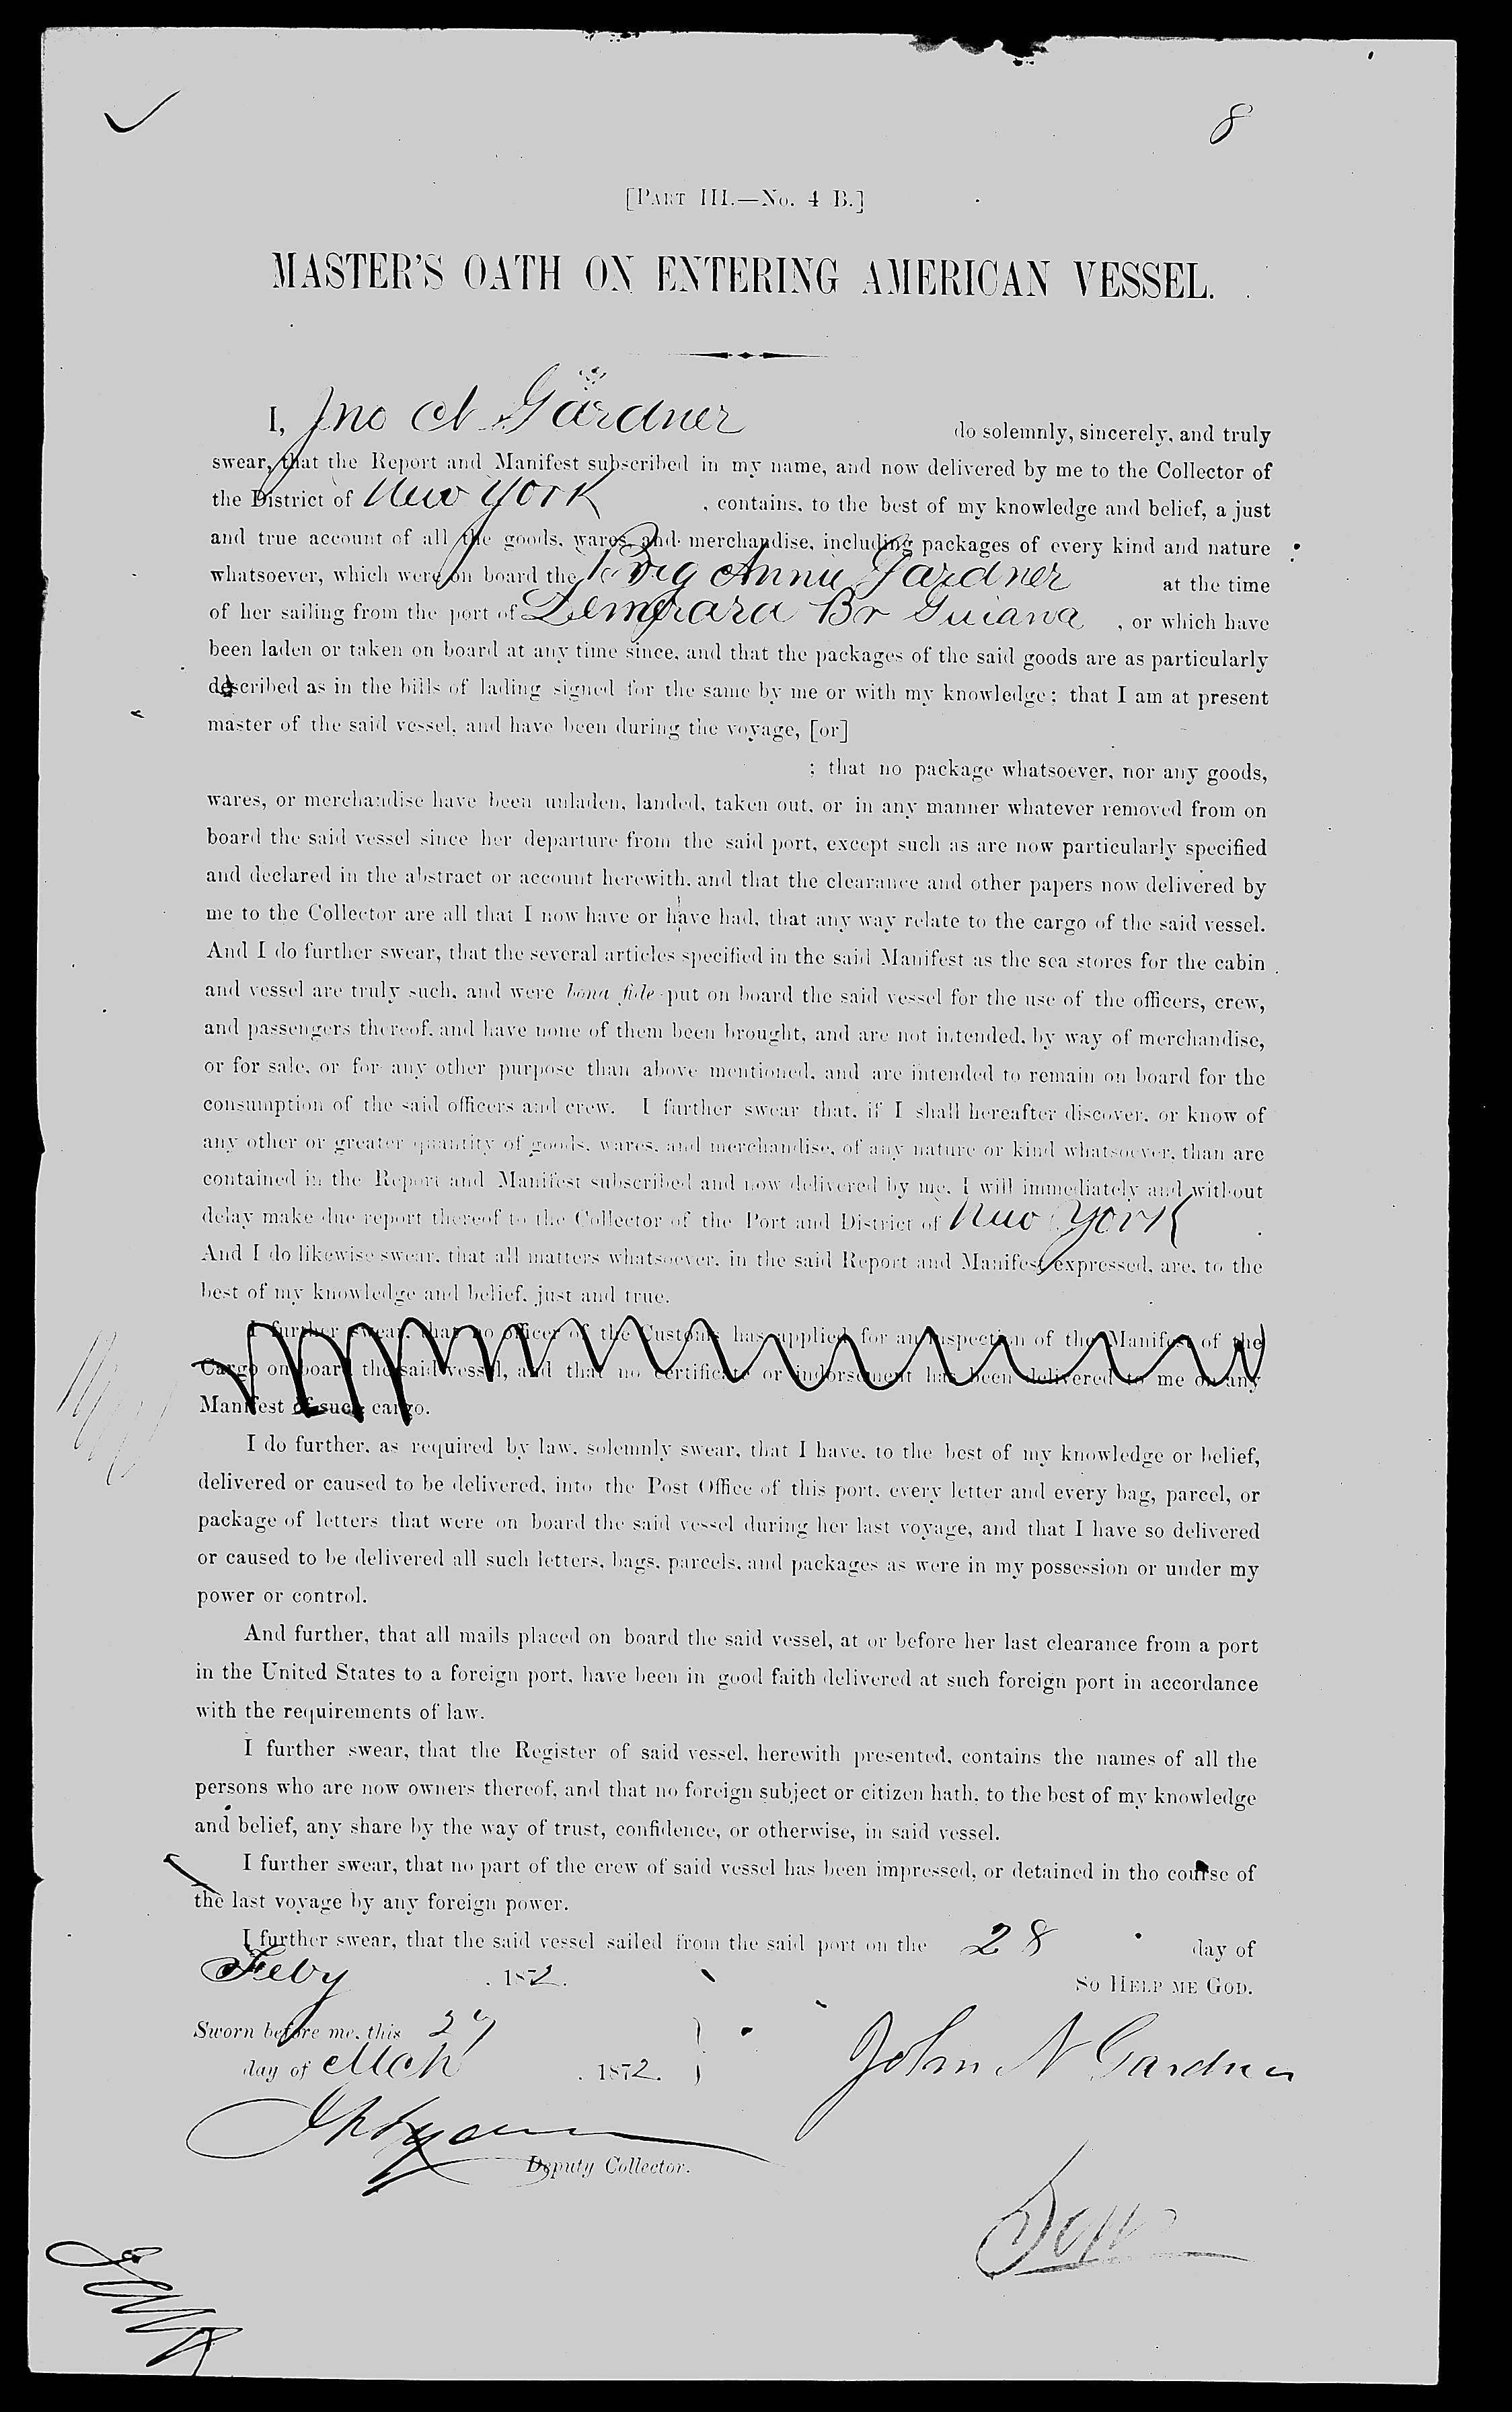 8
[PART III.—No. 4 B.]
MASTER'S OATH ON ENTERING AMERICAN VESSEL.
I, Jno N Gardner do solemnly, sincerely, and truly
swear, that the Report and Manifest subscribed in my name, and now delivered by me to the Collector of
the District of New York , contains, to the best of my knowledge and belief, a just
and true account of all the goods, wares, and merchandise, including packages of every kind and nature
whatsoever, which were on board the Brig Annie Gardner at the time
of her sailing from the port of Demerara Br Guiana , or which have
been laden or taken on board at any time since, and that the packages of the said goods are as particularly
described as in the bills of lading signed for the same by me or with my knowledge; that I am at present
master of the said vessel, and have been during the voyage, [or]
; that no package whatsoever, nor any goods,
wares, or merchandise have been unladen, landed, taken out, or in any manner whatever removed from on
board the said vessel since her departure from the said port, except such as are now particularly specified
and declared in the abstract or account herewith, and that the clearance and other papers now delivered by
me to the Collector are all that I now have or have had, that any way relate to the cargo of the said vessel.
And I do further swear, that the several articles specified in the said Manifest as the sea stores for the cabin
and vessel are truly such, and were bona fide put on board the said vessel for the use of the officers, crew,
and passengers thereof, and have none of them been brought, and are not intended, by way of merchandise,
or for sale, or for any other purpose than above mentioned, and are intended to remain on board for the
consumption of the said officers and crew. I further swear that, if I shall hereafter discover, or know of
any other or greater quantity of goods, wares, and merchandise, of any nature or kind whatsoever, than are
contained in the Report and Manifest subscribed and now delivered by me, I will immediately and without
delay make due report thereof to the Collector of the Port and District of New York
And I do likewise swear, that all matters whatsoever, in the said Report and Manifest expressed, are, to the
best of my knowledge and belief, just and true.
I further swear, that no officer of the Customs has applied for an inspection of the Manifest of the
Cargo on board the said vessel, and that no certificate or indorsement has been delivered to me on any
Manifest of such cargo.
I do further, as required by law, solemnly swear, that I have, to the best of my knowledge or belief,
delivered or caused to be delivered, into the Post Office of this port, every letter and every bag, parcel, or
package of letters that were on board the said vessel during her last voyage, and that I have so delivered
or caused to be delivered all such letters, bags, parcels, and packages as were in my possession or under my
power or control.
And further, that all mails placed on board the said vessel, at or before her last clearance from a port
in the United States to a foreign port, have been in good faith delivered at such foreign port in accordance
with the requirements of law.
I further swear, that the Register of said vessel, herewith presented, contains the names of all the
persons who are now owners thereof, and that no foreign subject or citizen hath, to the best of my knowledge
and belief, any share by the way of trust, confidence, or otherwise, in said vessel.
I further swear, that no part of the crew of said vessel has been impressed, or detained in tho course of
the last voyage by any foreign power.
I further swear, that the said vessel sailed from the said port on the 28 day of
Feby , 1872. SO HELP ME GOD.
Sworn before me, this 27
day of Mch , 1872. John N Gardner
Deputy Collector.